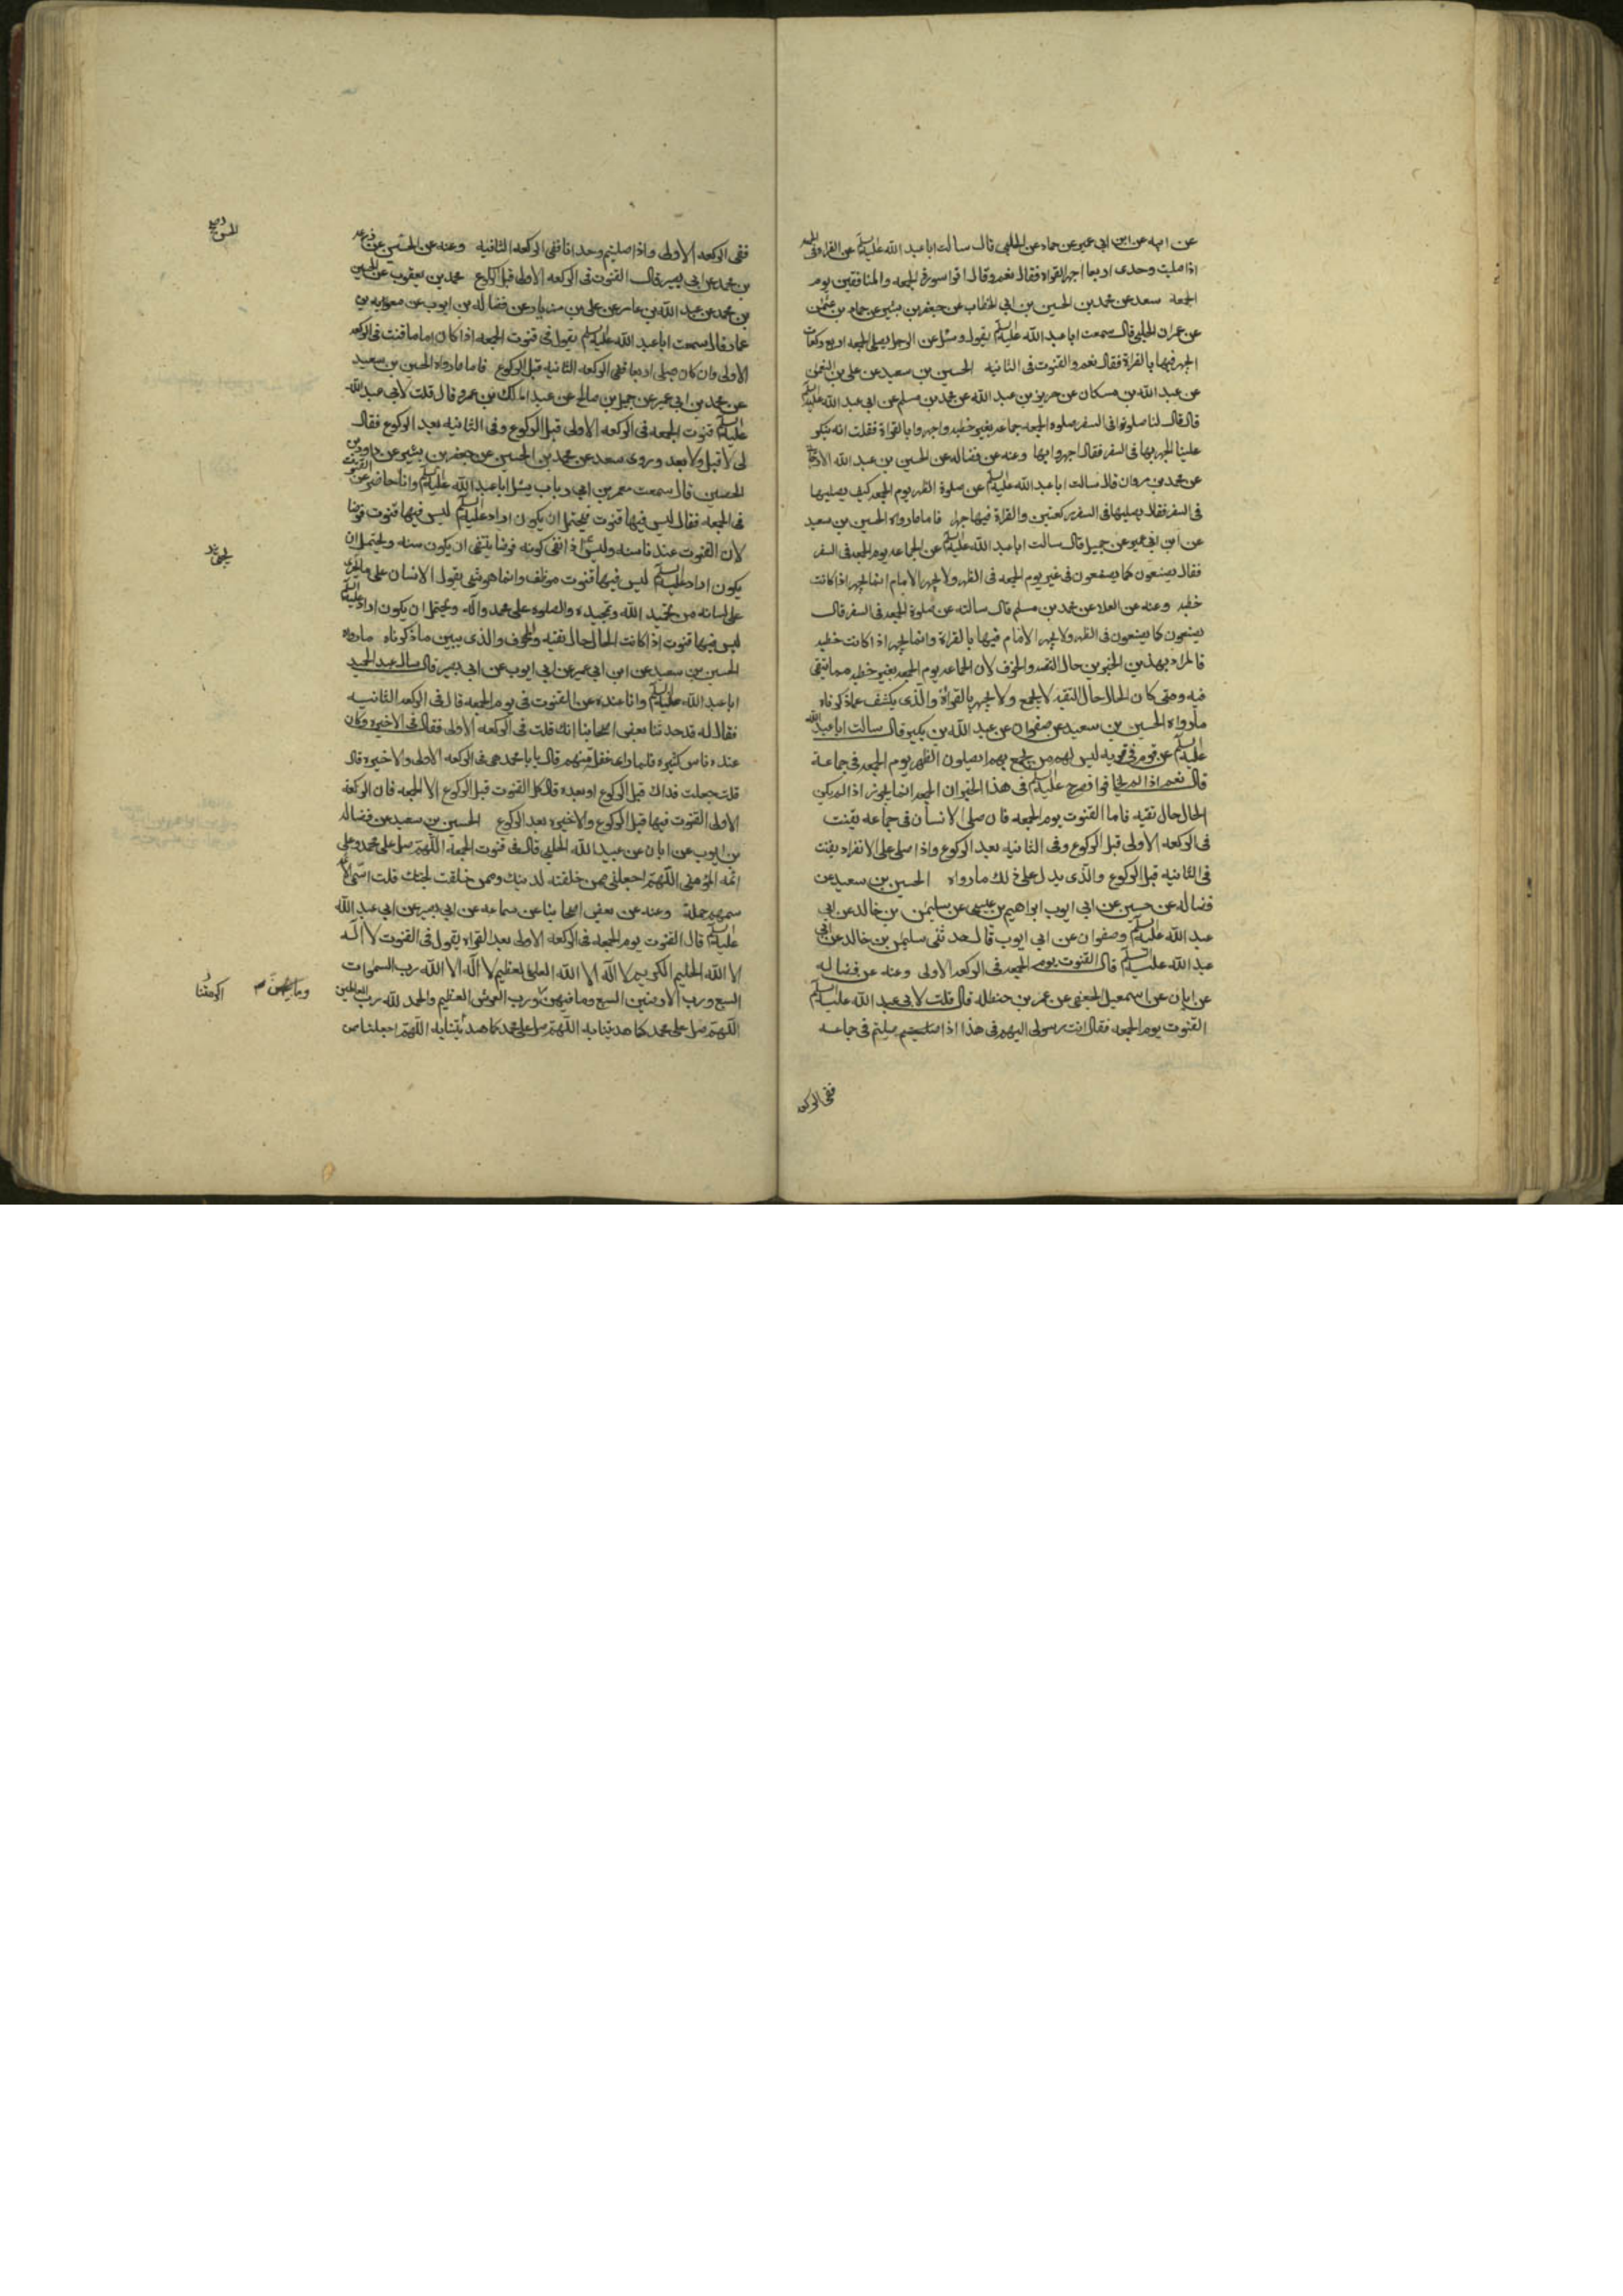 عن ابيه عن ابن ابي عمير عن حماد عن الحلبي قال سالت ابا عبد الله عليه السلم عن القراءة في الجمعه
اذا صليت وحدى اربعا اجهر بالقراه فقال نعم وقال اقرا سورة الجمعه والمنافقين يوم
الجمعة سعد عن محمد بن الحسين بن ابي الخطاب عن جعفر بن بشير عن حماد بن عثمن
عن عمران الحلبي قال سمعت ابا عبد الله عليه السلم يقول وسئل عن الرجل يصلى الجمعه اربع ركعات
الجهر فيها بالقراة فقال نعم والقنوت فى الثانيه الحسين بن سعيد عن على بن النعمن
عن عبد الله بن مسكان عن حريز بن عبد الله عن محمد بن مسلم عن ابى عبد الله عليه السلم
قال قال لنا صلوا فى السفر صلوه الجمعه جماعه بغير خطبه واجهروا بالقراة فقلت انه ينكر
علينا الجهر بها فى السفر فقال اجهروا بها وعنه عن فضاله عن الحسين بن عبد الله الارجانى
عن محمد بن مروان قال سالت ابا عبد الله عليه السلم عن صلوة الظهر يوم الجمعه كيف يصليها
فى السفر فقال يصليها فى السفر ركعتين والقراة فيها جهرا فاما ما رواه الحسين بن سعيد
عن ابن ابى عمير عن جميل قال سالت ابا عبد الله عليه السلم عن الجماعه يوم الجمعه فى السفر
فقال يصنعون كما يصنعون فى غير يوم الجمعه فى الظهر ولا يجهر الامام انما يجهر اذا كانت
خطبه وعنه عن العلا عن محمد بن مسلم قال سالته عن صلوة الجمعه فى السفر قال
يصنعون كما يصنعون فى الظهر ولا يجهر الامام فيها بالقراة وانما يجهر اذا كانت خطبه
فالمراد بهذين الخبرين حال التقيه والخوف لان الجماعه يوم الجمعه بغير خطبه مما يتقى
فيه ومتى كان الحال حال التقيه لا يجمع ولا يجهر بالقراة والذى يكشف عما ذكرناه
ما رواه الحسين بن سعيد عن صفوان عن عبد الله بن بكير قال سالت ابا عبد الله
عليه السلم عن قوم فى قريه ليس لهم من يجمع بهم ايصلون الظهر يوم الجمعه فى جماعة
قال نعم اذا لم يخافوا فصرح عليه السلم فى هذا الخبر ان الجمعه انما يجوز اذا لم يكن
الحال حال تقيه فاما القنوت يوم الجمعه فان صلى الانسان فى جماعه يقنت
فى الركعه الاولى قبل الركوع وفى الثانيه بعد الركوع واذا صلى على الانفراد يقنت
فى الثانيه قبل الركوع والذى يدل على ذلك ما رواه الحسين بن سعيد عن
فضاله عن حسين عن ابى ايوب ابراهيم بن عيسى عن سليمن بن خالد عن ابى
عبد الله عليه السلم وصفوان عن ابى ايوب قال حدثنى سليمن بن خالد عن ابى
عبد الله عليه السلم قال القنوت يوم الجمعه فى الركعه الاولى وعنه عن فضاله
عن ابان عن اسمعيل الجعفى عن عمر بن حنظله قال قلت لابى عبد الله عليه السلم
القنوت يوم الجمعه فقال انت رسولى اليهم فى هذا اذا صليتم فى جماعه
ففى الركعه
ففى الركعه الاولى واذا صليتم وحدانا ففى الركعه الثانيه وعنه عن الحسن عن زرعه
بن محمد عن ابى بصير قال القنوت فى الركعه الاولى قبل الركوع محمد بن يعقوب عن الحسين
بن محمد عن عبد الله بن عامر عن على بن مهزيار عن فضاله بن ايوب عن معويه بن
عمار قال سمعت ابا عبد الله عليه السلم يقول فى قنوت الجمعه اذا كان اماما قنت فى الركعه
الاولى وان كان يصلى اربعا ففى الركعه الثانيه قبل الركوع فاما ما رواه الحسين بن سعيد
عن محمد بن ابى عمير عن جميل بن صالح عن عبد الملك بن عمرو قال قلت لابى عبد الله
عليه السلم قنوت الجمعه فى الركعه الاولى قبل الركوع وفى الثانيه بعد الركوع فقال
لى لا قبل ولا بعد وروى سعد عن محمد بن الحسين عن جعفر بن بشير عن داود بن
الحصين قال سمعت معمر بن ابى رباب يسئل ابا عبد الله عليه السلم وانا حاضر عن القنوت
فى الجمعه فقال ليس فيها قنوت فيحتمل ان يكون اراد عليه السلم ليس فيها قنوت فرضا
لان القنوت عندنا سنه وليس اذا انتفى كونه فرضا ينتفى ان يكون سنه ويحتمل ان
يكون اراد عليه السلم ليس فيها قنوت موظف وانما هو شى يقول الانسان على ما يجرى
على لسانه من تحميد الله وتمجيده والصلوه على محمد وآله ويحتمل ان يكون اراد عليه السلم
ليس فيها قنوت اذا كانت الحال حال تقيه والخوف والذى يبين ما ذكرناه ما رواه
الحسين بن سعيد عن ابن ابى عمير عن ابى ايوب عن ابى بصير قال سال عبد الحميد
ابا عبد الله عليه السلم وانا عنده عن القنوت فى يوم الجمعه قال فى الركعه الثانيه
فقال له قد حدثنا بعض اصحابنا انك قلت فى الركعه الاولى فقال فى الاخيره وكان
عنده ناس كثيره فلما راى غفله منهم قال يا با محمد هى فى الركعه الاولى والاخيره قال
قلت جعلت فداك قبل الركوع او بعده قال كل القنوت قبل الركوع الا الجمعه فان الركعه
الاولى القنوت فيها قبل الركوع والاخيره بعد الركوع الحسين بن سعيد عن فضاله
بن ايوب عن ابان عن عبيد الله الحلبى قال فى قنوت الجمعه اللهم صل على محمد وعلى
ائمه المؤمنين اللهم اجعلنى ممن خلقته لدينك وممن خلقت لجنتك قلت اسمى الائمه
سمهم جملة وعنه عن بعض اصحابنا عن سماعه عن ابى بصير عن ابى عبد الله
عليه السلم قال القنوت يوم الجمعه فى الركعه الاولى بعد القراه يقول فى القنوت لا اله
الا الله الحليم الكريم لا اله الا الله العلى العظيم لا اله الا الله رب السموات
السبع ورب الارضين السبع وما فيهن ورب العرش العظيم والحمد لله رب العالمين
اللهم صل على محمد كما هديتنا به اللهم صل على محمد كما هديتنا به اللهم اجعلنا من
وما بينهن
اكرمتنا